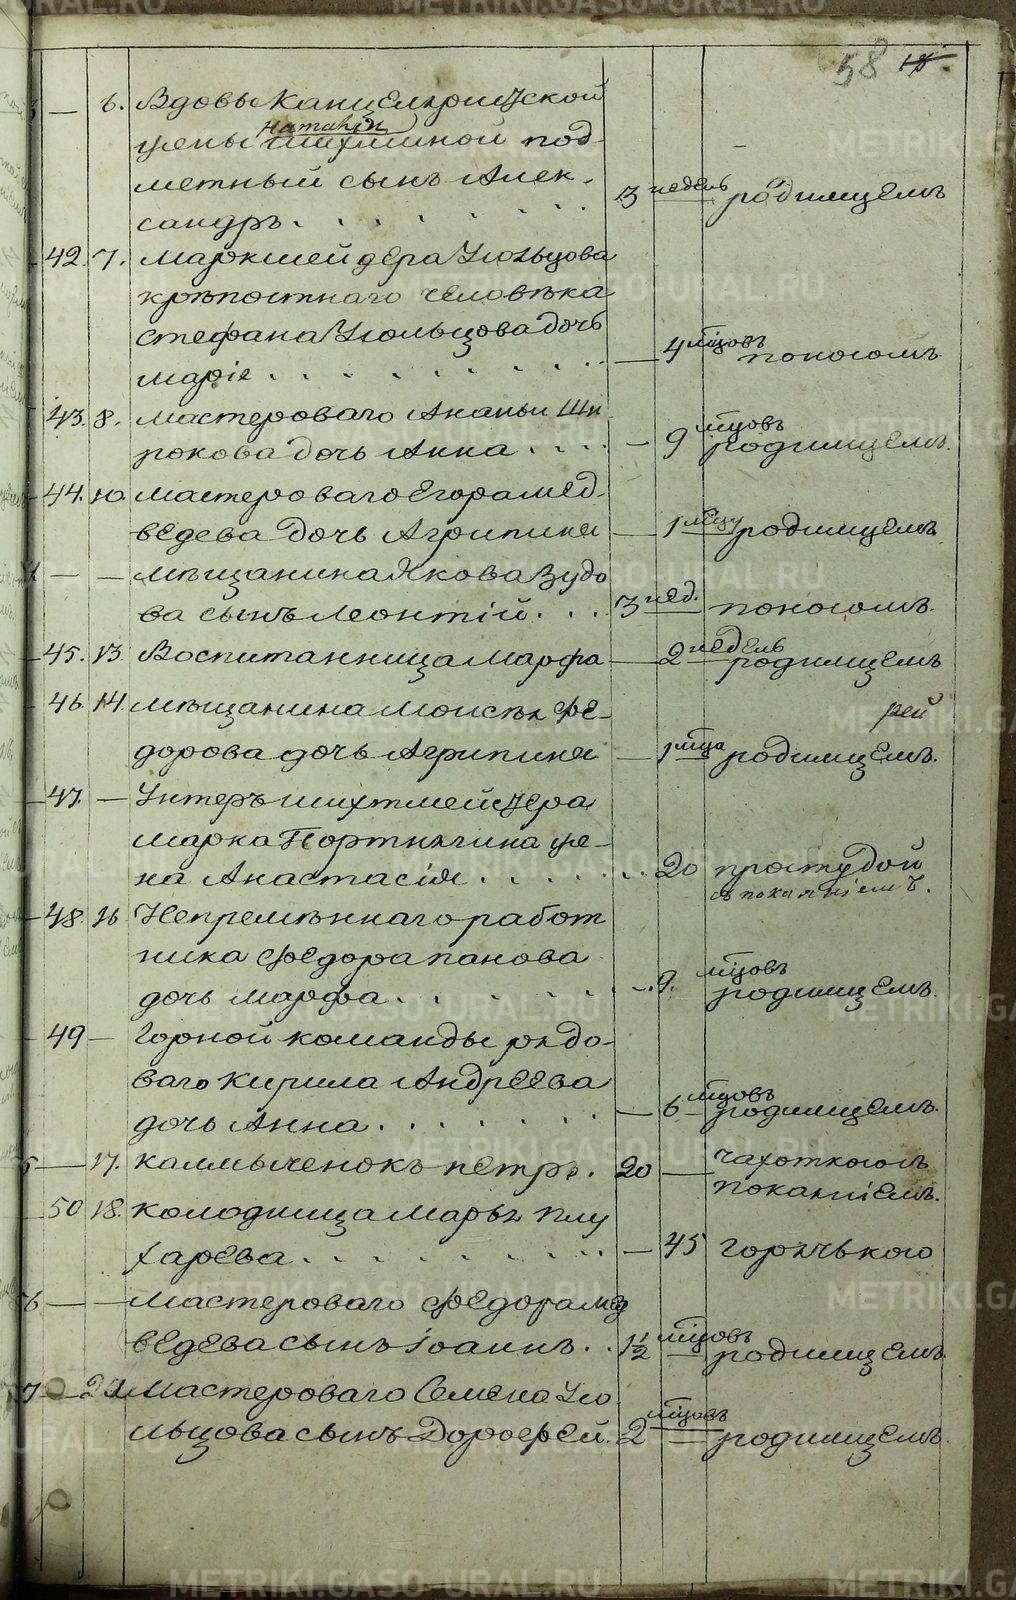 58
— 6. Вдовы Канцеляристской
Наталіи
жены Шихминой под-
метный сынъ Алек-
сандръ. 3 недель родимцемъ
42. 7. Маркшейдера Ухольцова
крѣпостнаго человѣка
Стефана Ухольцова дочь
Марія 4 мцовъ поносомъ
43. 8. Мастероваго Ананьи Ши
рокова дочь Анна 9 мцовъ родимцемъ.
44. 10. Мастероваго Егора Мед-
ведева дочь Агрипина 1 мцу родимцемъ
— — Мѣщанина Якова Зудо
ва сынъ Леонтій. 3 нед. поносомъ.
45. 13. Воспитанница Марфа 2 недель родимцемъ
46 14. Мѣщанина Моисѣя Фе-
дорова дочь Агрипина 1 мца родимцемъ.
47. — Унтеръ шихтмейстера
Марка Портнягина же-
на Анастасія 20 простудой
съ покаяніемъ.
48. 16 Непремѣннаго работ
ника Федора Панова
дочь Марфа 9. мцовъ родимцемъ.
49 — Горной команды рядо-
ваго Кирила Андреева
дочь Анна. 6 мцовъ родимцемъ.
— 17. Калмыченокъ Петръ. 20 — чахоткою съ
покаяніемъ.
50 18. Колодница Марья Плу
харева — 45 горячькою
6 — — Мастероваго Федора Мед
ведева сынъ Іоаннъ. 1½ мцовъ родимцемъ.
7 — Мастероваго Семена Ухо-
льцова сынъ Дорофей. 2 мцовъ родимцемъ.
METRIKI.GASO-URAL.RU